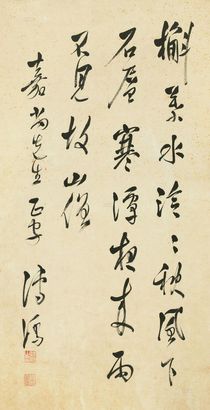 槲葉水泠〻秋風下
石層寒潭夜來雨
不見故山僧
嘉尚先生正字
溥儒